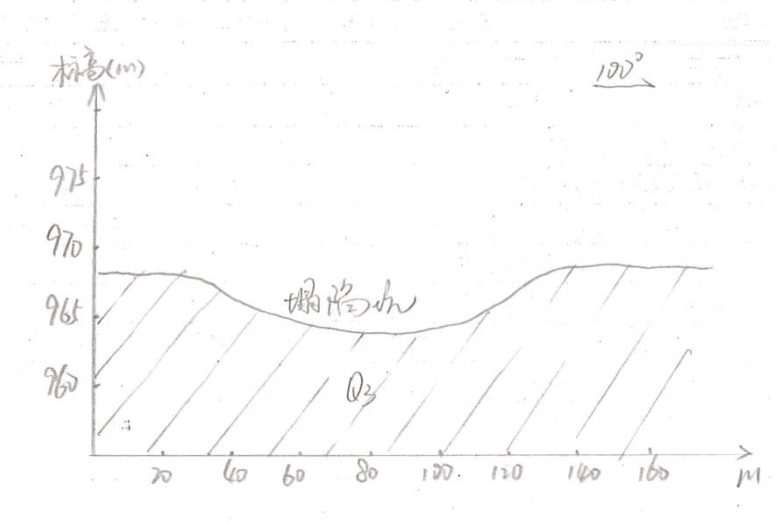 标高(m)
100°
975
970
965
960
塌陷坑
Q3
20 40 60 80 100 120 140 160 m